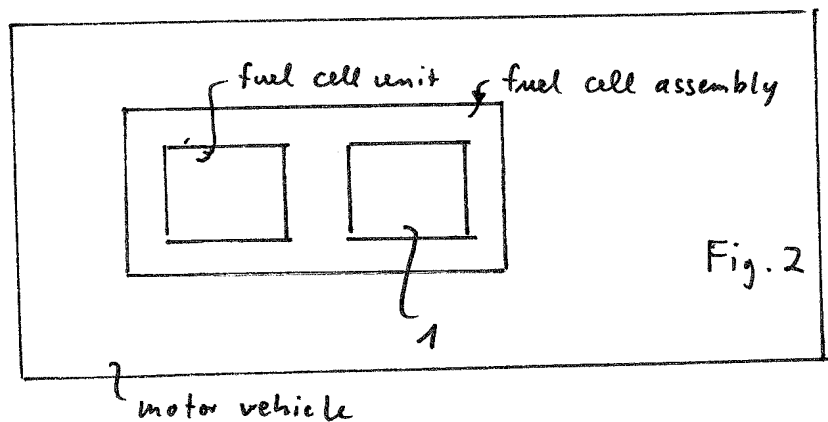 fuel cell unit
fuel cell assembly
Fig. 2
1
motor vehicle